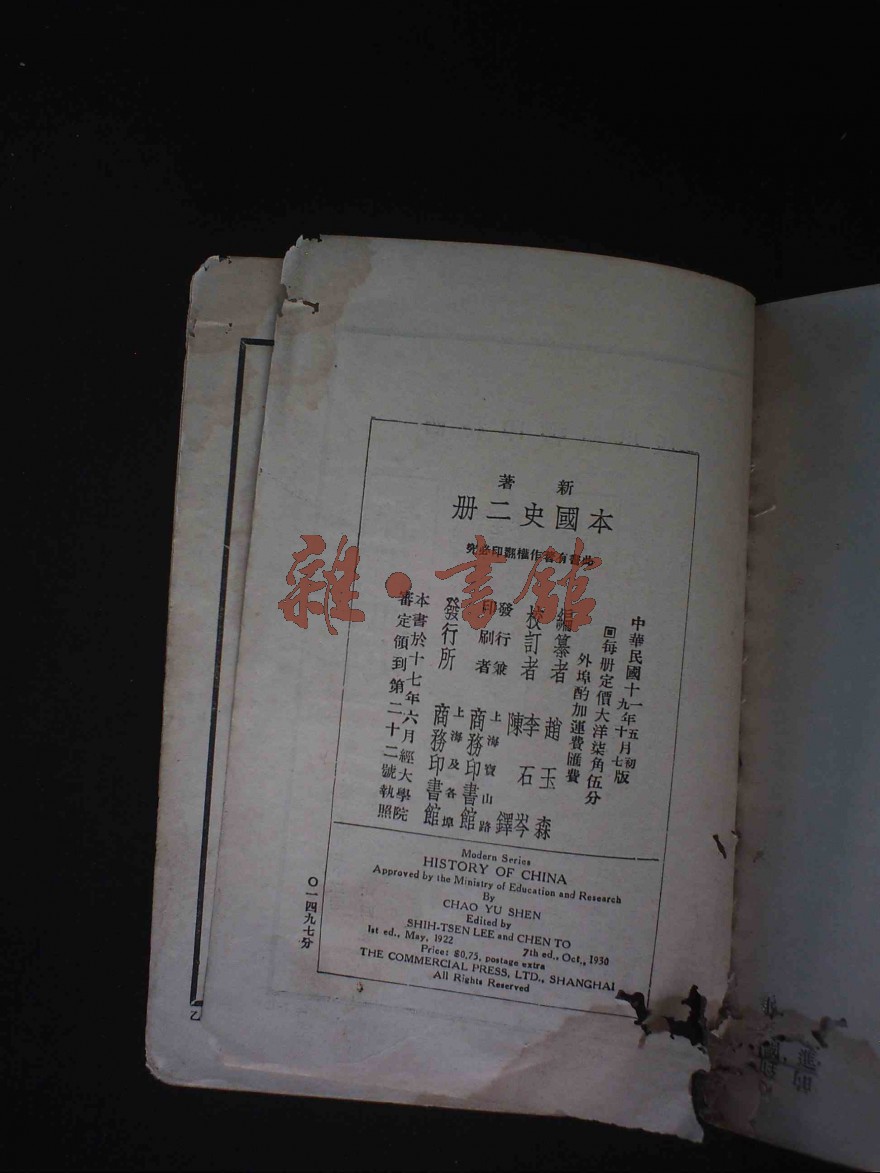 新著
本國史二冊
此書有著作權翻印必究
中華民國十一年五月初版
九年十月七版
回每册定價大洋柒角伍分
外埠酌加運費匯費
編纂者 趙玉森
校訂者 李石岑
陳鐸
發行兼印刷者 上海寶山路 商務印書館
發行所 上海及各埠 商務印書館
本書於十七年六月經大學院
審定領到第二十二號執照
Modern Series
HISTORY OF CHINA
Approved by the Ministry of Education and Research
By
CHAO YU SHEN
Edited by
SHIH-TSEN LEE and CHEN TO
1st ed., May, 1922 7th ed., Oct., 1930
Price: $0.75, postage extra
THE COMMERCIAL PRESS, LTD., SHANGHAI
All Rights Reserved
〇一四九七分
乙
雜·書館